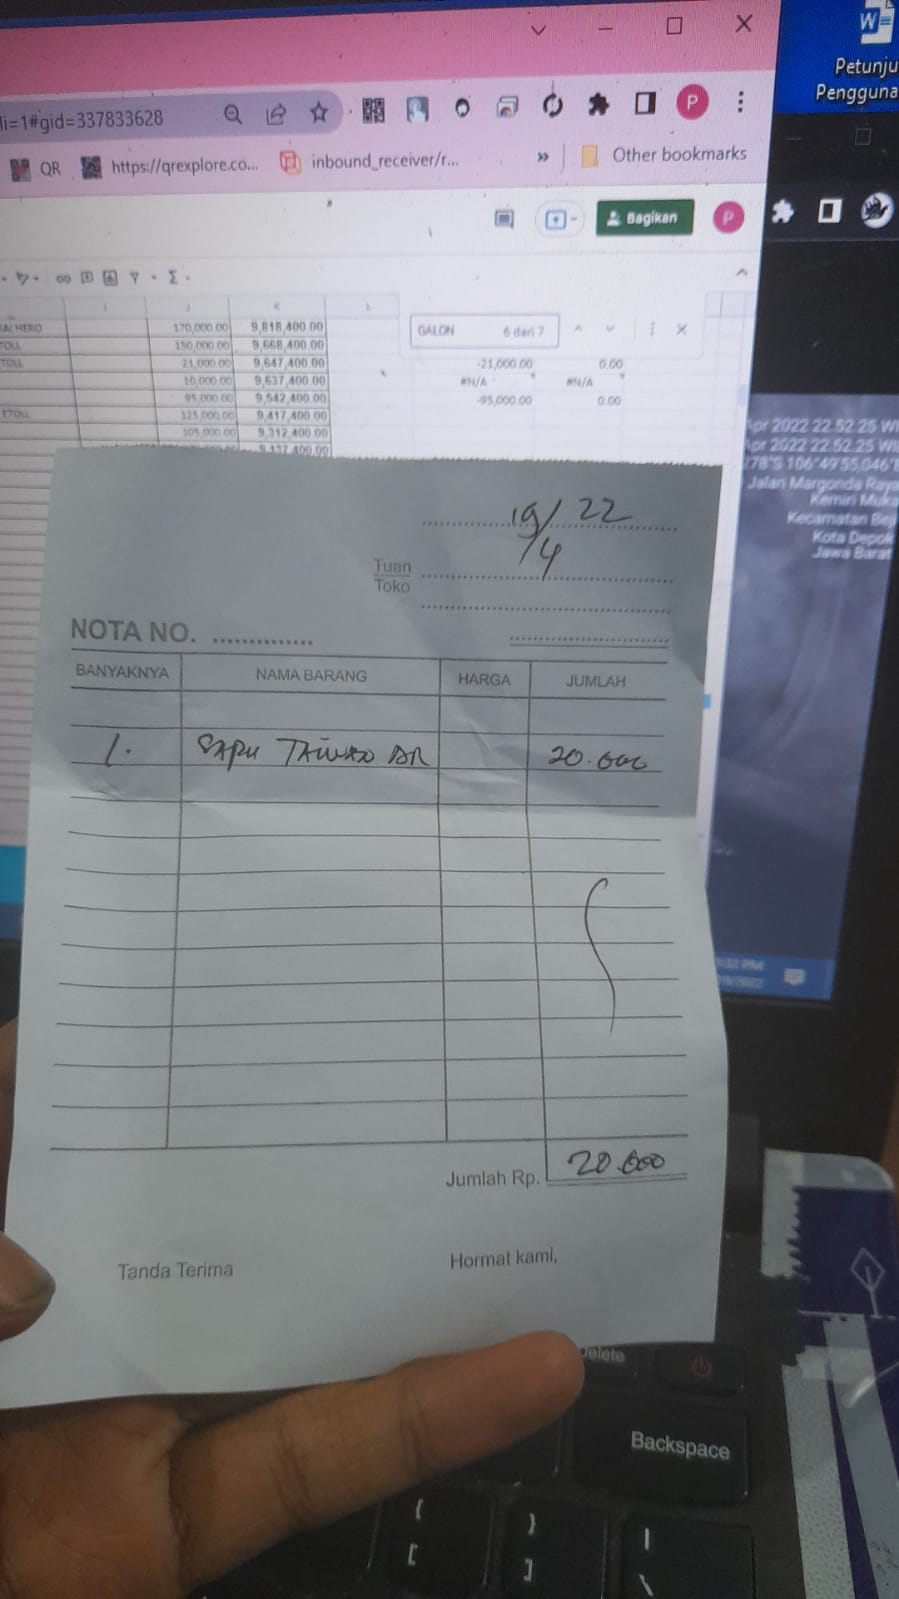 Petunju
Pengguna
li=1#gid=337833628
P
QR
https://qrexplore.co...
inbound_receiver/r...
»
Other bookmarks
Bagikan
P
J
K
L
170,000.00 9,818,400.00
TOLL 150,000.00 9,668,400.00
TOLL 21,000.00 9,647,400.00
10,000.00 9,637,400.00
95,000.00 9,542,400.00
ETOLL 125,000.00 9,417,400.00
105,000.00 9,312,400.00
9,137,400.00
GALON 6 dari 7
-21,000.00 0.00
#N/A #N/A
-95,000.00 0.00
Apr 2022 22.52.25 WI
Apr 2022 22.52.25 WI
278"S 106°49'55,046"E
Jalan Margonda Raya
Kemiri Muka
Kecamatan Beji
Kota Depok
Jawa Barat
19/4 22
Tuan
Toko
NOTA NO. ..............
BANYAKNYA NAMA BARANG HARGA JUMLAH
1. SAPU TAIWAN 20.000
Jumlah Rp. 20.000
Tanda Terima Hormat kami,
Delete
Backspace
{
[
}
]
|
\